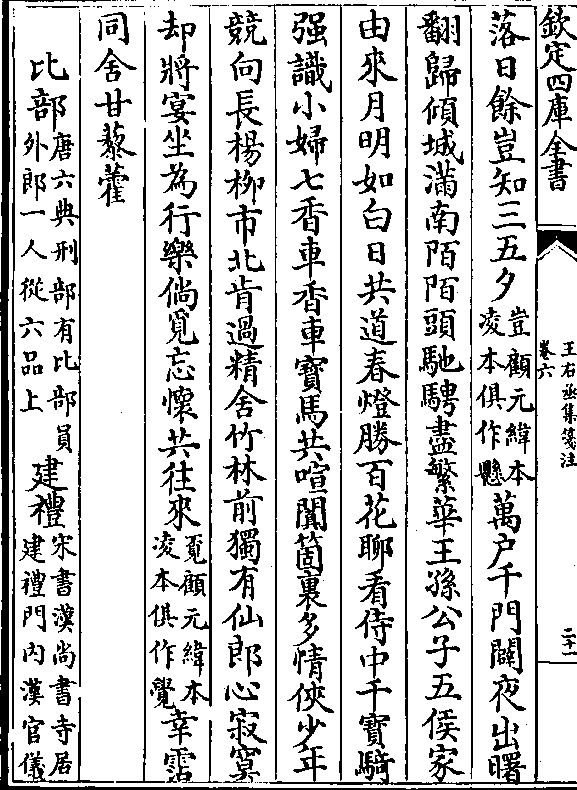 欽定四庫全書
王右丞集箋注
卷六
二十一
落日餘豈知三五夕豈顧元緯本凌本俱作懸萬户千門闢夜出曙
翻歸傾城滿南陌陌頭馳騁盡繁華王孫公子五侯家
由來月明如白日共道春燈勝百花聊看侍中千寶騎
强識小婦七香車香車寶馬共喧闐箇裏多情俠少年
競向長楊柳市北肯過精舍竹林前獨有仙郎心寂寞
却將宴坐為行樂倘覓忘懷共往來覓顧元緯本凌本俱作覺幸霑
同舍甘藜藿
比部唐六典刑部有比部員外郎一人從六品上建禮宋書漢尚書寺居建禮門内漢官儀